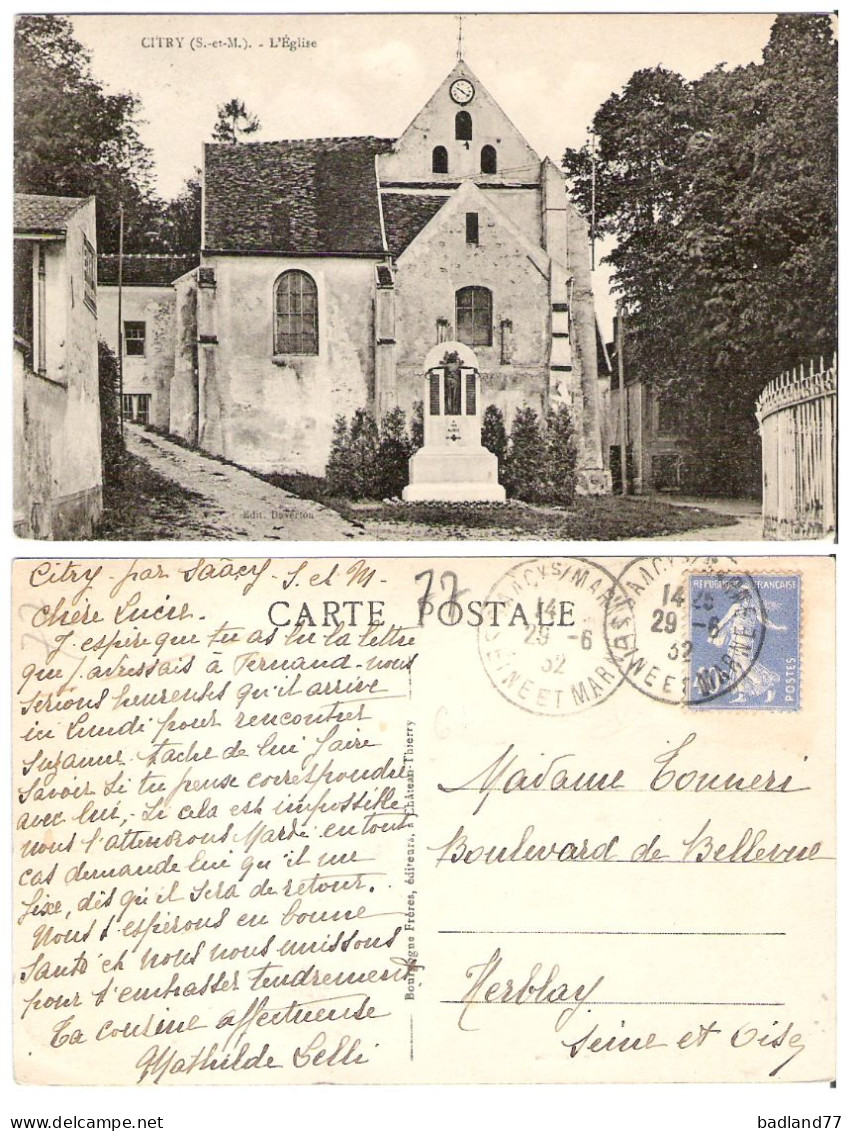 CITRY (S.-et-M.). - L'Église
Edit. Daverton
Citry par Saâcy S. et M.
77
77
Chère Lucie.
CARTE POSTALE
J'espère que tu as lu la lettre
que j'adressais à Fernand - nous
serions heureuses qu'il arrive
ici Lundi pour rencontrer
Suzanne. tâche de lui faire
savoir si tu pense correspondre
avec lui, - Si cela est impossible,
nous l'attendrons Mardi en tout
cas demande lui qu'il me
fixe, dès qu'il sera de retour.
Nous t'espérons en bonne
Santé et nous nous unissons
pour t'embrasser tendrement
Ta cousine affectueuse
Mathilde Lelli
Bourgogne Frères, éditeurs, à Château-Thierry
SAACY S/MARNE
14
29 -6
32
SEINE ET MARNE
SAACY S/MARNE
29 -6
32
SEINE ET MARNE
REPUBLIQUE FRANÇAISE
POSTES
Madame Tonneri
Boulevard de Bellevue
Herblay
Seine et Oise
badland77